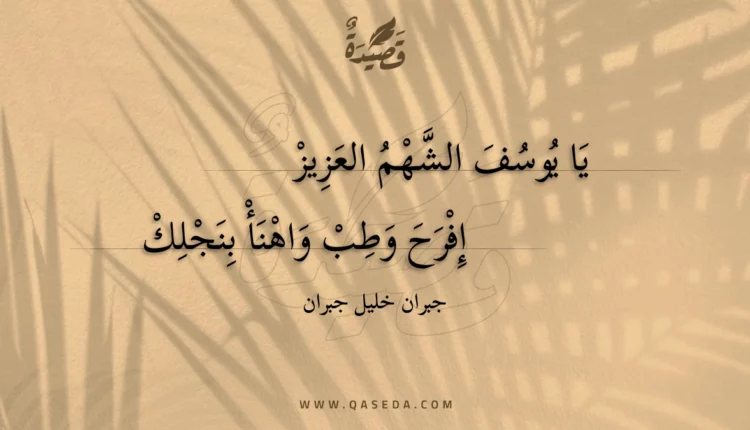 قَصِيدَةٌ
يَا يُوسُفَ الشَّهْمُ العَزِيزْ
إِفْرَحَ وَطِبْ وَاهْنَأْ بِنَجْلِكْ
جبران خليل جبران
WWW.QASEDA.COM